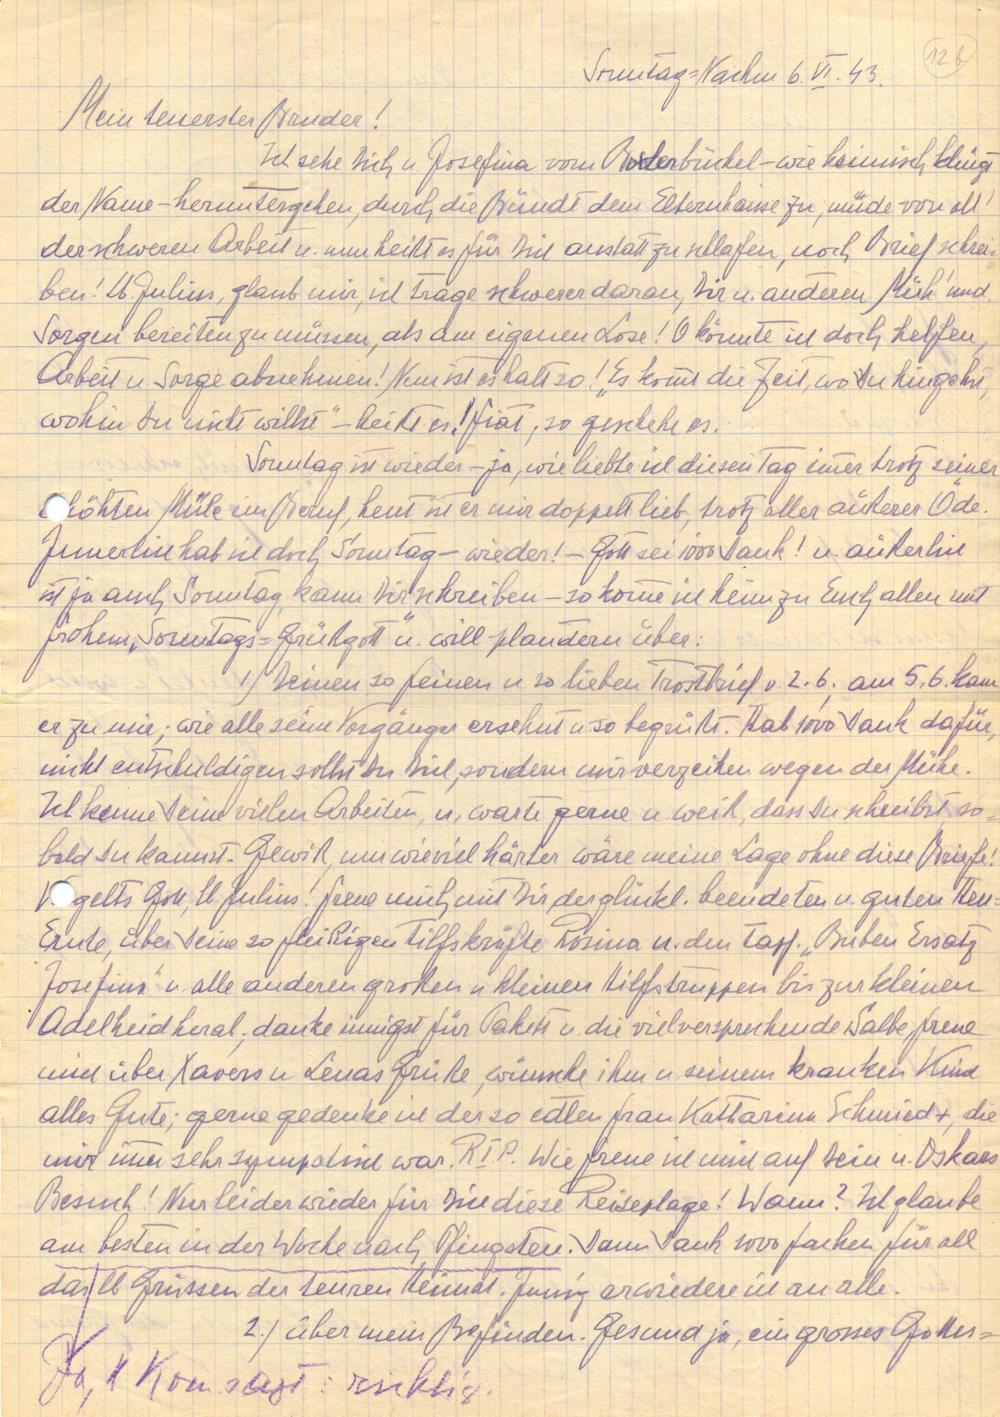 12 b
Sonntag=Nachm 6. VI. 43.
Mein teuerster Bruder!
Ich sehe Dich u. Josefina vom Boderbüchel – wie heimisch klingt
der Name – heruntergehen, durch die Bündt dem Elternhause zu, müde von all'
der schweren Arbeit u. nun heißt es für Dich anstatt zu schlafen, noch Brief schrei=
ben! Lb Julius, glaub mir, ich trage schwerer daran, Dir u. anderen Müh' und
Sorgen bereiten zu müssen, als am eigenen Lose! O könnte ich doch helfen,
Arbeit u Sorge abnehmen! Nun ist es halt so! „Es komt die Zeit, wo Du hingehst,
wohin Du nicht willst" – heißt es! fiat, so geschehe es.
Sonntag ist wieder – ja, wie liebte ich diesen Tag imer trotz seiner
erhöhten Mühe im Beruf, heut ist er mir doppelt lieb, trotz aller äußerer Öde.
Innerlich hab ich doch Sonntag – wieder! – Gott sei 1000 Dank! u. äußerlich
ist ja auch Sonntag, kann Dir schreiben – so kome ich heim zu Euch allen mit
frohem „Sonntags=Grüßgott" u. will plaudern über:
1.) Deinen so feinen u so lieben Trostbrief v. 2. 6., am 5. 6. kam
er zu mir; wie alle seine Vorgänger ersehnt u. so begrüßt. Hab 1000 Dank dafür,
nicht entschuldigen sollst Du Dich, sondern mir verzeihen wegen der Mühe.
Ich kenne Deine vielen Arbeiten, u. warte gerne u weiß, dass Du schreibst so=
bald Du kannst. Gewiß, um wieviel härter wäre meine Lage ohne diese Briefe!
Vergelts Gott, lb Julius! freue mich mit Dir der glückl. beendeten u. guten Heu=
Ernte, über Deine so fleißigen Hilfskräfte Rosina u. den tapf. „Buben Ersatz
Josefina" u. alle anderen großen u kleinen Hilfstruppen bis zur kleinen
Adelheid herab; danke innigst für Paket u. die vielversprechende Salbe, freue
mich über Xavers u Lenas Grüße, wünsche ihm u seinem kranken Kind
alles Gute; gerne gedenke ich der so edlen frau Katharina Schmied +, die
mir imer sehr sympatisch war. R I P. Wie freue ich mich auf Dein u. Oskars
Besuch! Nur leider wieder für Dich diese Reiseplage! Wann? Ich glaube
am besten in der Woche nach Pfingsten. Dann Dank 1000 fachen für all
das lb Grüssen der teuren Heimat. Innig erwiedere ich an alle.
2.) über mein Befinden. Gesund ja, ein grosses Gottes=
Ja, sagt: richtig.